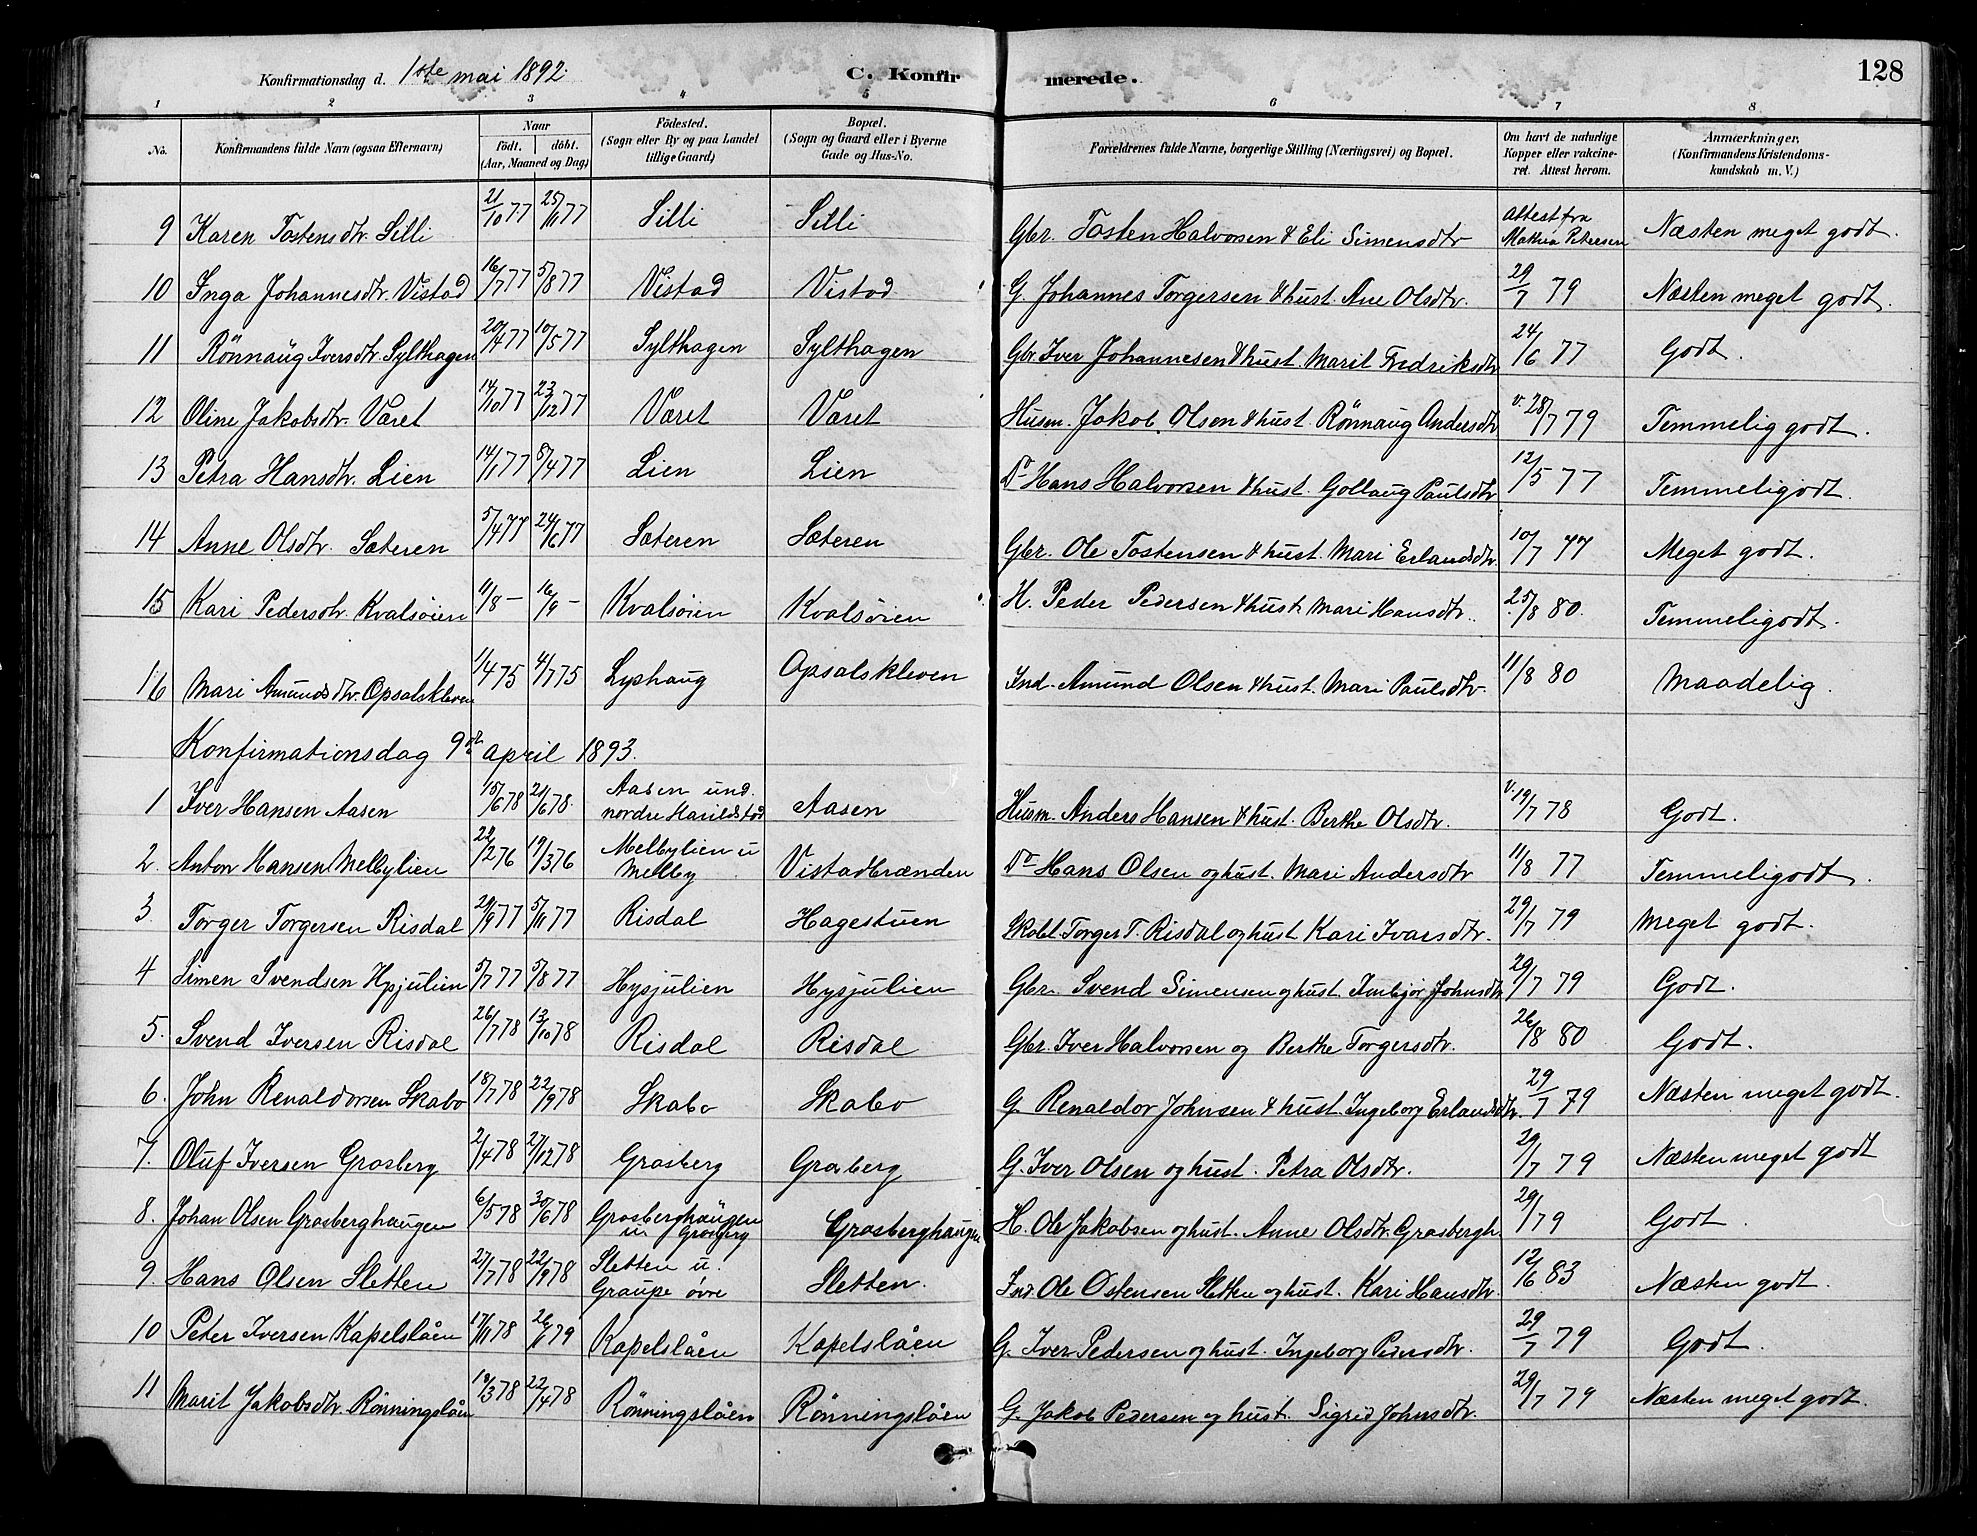 Konfirmationsdag d. 1ste mai 1892. C. Konfirmerede. 128
1 2 3 4 5 6 7 8
No. Konfirmandens fulde Navn (ogsaa Efternavn) Naar født. døbt. (Aar, Maaned og Dag) Fødested. (Sogn eller By og paa Landet tillige Gaard) Bopæl. (Sogn og Gaard eller i Byerne Gade og Hus-No. Forældrenes fulde Navne, borgerlige Stilling (Næringsvei) og Bopæl. Om havt de naturlige Kopper eller vakcineret. Attest herom. Anmærkninger, (Konfirmandens Kristendomskundskab m. V.)
9 Karen Tostensdtr. Lilli 21/10 77 25/11 77 Lilli Lilli Gbr. Tosten Halvorsen & Eli Simensdtr Attest fra Mathia Petersen Næsten meget godt.
10 Inga Johannesdtr. Vistad 16/7 77 5/8 77 Vistad Vistad G. Johannes Torgersen & hust. Ane Olsdtr. 29/7 79 Næsten meget godt.
11 Rönnaug Iversdtr. Sylthagen 20/4 77 10/5 77 Sylthagen Sylthagen Gbr. Iver Johannesen & hust. Marit Fredriksdtr 24/6 77 Godt.
12 Oline Jakobsdtr. Våret 14/10 77 23/12 77 Været Våret Husm. Jakob Olsen & hust. Rönnaug Andersdtr v. 28/7 79 Temmelig godt.
13 Petra Hansdtr. Lien 14/1 77 8/4 77 Lien Lien Do Hans Halvorsen & hust. Gollaug Paulsdtr 12/5 77 Temmeligodt.
14 Anne Olsdtr. Sæteren 5/4 77 24/6 77 Sæteren Sæteren Gbr. Ole Tostensen & hust. Mari Erlandsdtr. 10/7 77 Meget godt.
15 Kari Pedersdtr. Kvalsöien 11/8 - 16/9 - Kvalsöien Kvalsöien H. Peder Pedersen & hust. Mari Hansdtr. 25/8 80. Temmeligodt.
16 Mari Amundsdtr. Opsalskleven 1/4 75 4/7 75 Lyshaug Opsalskleven Ind. Amund Olsen & hust. Mari Paulsdtr. 11/8 80 Maadelig.
Konfirmationsdag 9de april 1893.
1 Iver Hansen Aasen 15/6 78 21/6 78. Aasen und. nordre Harildstad Aasen Husm. Anders Hansen & hust. Berthe Olsdtr. v. 19/7 78 Godt.
2. Anton Hansen Melbylien 22/2 76 19/3 76 Melbylien u Melby Vistadbrænden Do Hans Olsen og hust. Mari Andersdtr 11/8 77 Temmeligodt.
3. Torger Torgersen Risdal 29/9 77 5/11 77 Risdal Hagestuen Skobl. Torger T. Risdal og hust. Kari Ivarsdtr. 29/7 79 Meget godt.
4 Simen Svendsen Hysjulien 5/7 77 5/8 77 Hysjulien Hysjulien Gbr. Svend Simensen og hust. Imbjør Johnsdtr 29/7 79 Godt.
5. Svend Iversen Risdal 26/7 78 13/10 78 Risdal Risdal Gbr. Iver Halvorsen og Berthe Torgersdtr. 26/8 80 Godt.
6. John Renaldorsen Skabo 18/7 78 22/9 78 Skabo Skabo G. Renaldor Johnsen & hust. Ingeborg Erlandsdtr. 29/7 79 Næsten meget godt.
7. Oluf Iversen Grosberg 2/4 78 27/12 78 Grosberg Grosberg G. Iver Olsen og hust. Petra Olsdtr. 29/7 79 Næsten meget godt
8. Johan Olsen Grosberghaugen 6/5 78 30/6 78 Grosberghaugen u Grosberg Grosberghaugen H. Ole Jakobsen og hust. Anne Olsdtr. Grosbergh. 29/7 79 Godt.
9 Hans Olsen Sletten 27/7 78 22/9 78 Sletten u. Graupe övre Sletten. Ind. Ole Ostensen Sletten og hust. Kari Hansdtr. 12/6 83 Næsten godt.
10 Peter Iversen Kapelslåen 17/11 78 26/1 79 Kapelslåen Kapelslåen G. Iver Pedersen og hust. Ingeborg Pedersdtr. 29/7 79 Godt.
11 Marit Jakobsdtr. Rönningslåen 19/3 78 22/4 78 Rönningslåen Rönningslåen G. Jakob Pedersen og hust. Sigrid Johnsdtr. 29/7 79 Næsten meget godt.